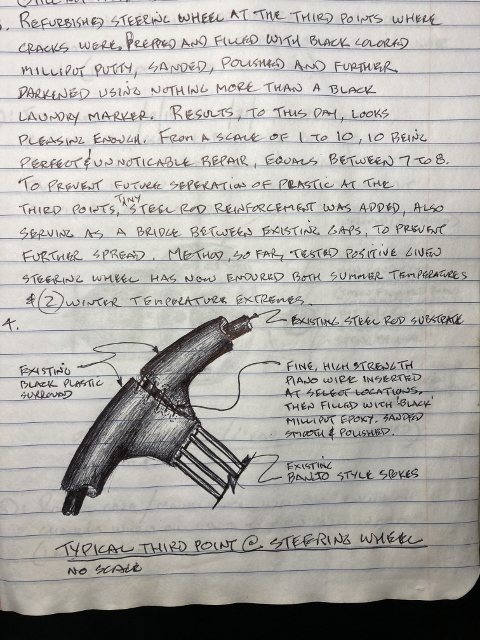 . Refurbished steering wheel at the third points where
cracks were prepped and filled with black colored
Milliput putty, sanded, polished and further
darkened using nothing more than a black
laundry marker. Results, to this day, looks
pleasing enough. From a scale of 1 to 10, 10 being
perfect & unnoticable repair, equals between 7 to 8.
To prevent future seperation of plastic at the
third points, tiny steel rod reinforcement was added, also
serving as a bridge between existing gaps, to prevent
further spread. Method, so far, tested positive given
steering wheel has now endured both summer temperatures
& (2) winter temperature extremes.
4.
Existing steel rod substrate
Existing
black plastic
surround
Fine, high strength
piano wire inserted
at select locations,
then filled with 'black'
Milliput epoxy. Sanded
smooth & polished.
Existing
banjo style spokes
Typical third point @ steering wheel
No scale